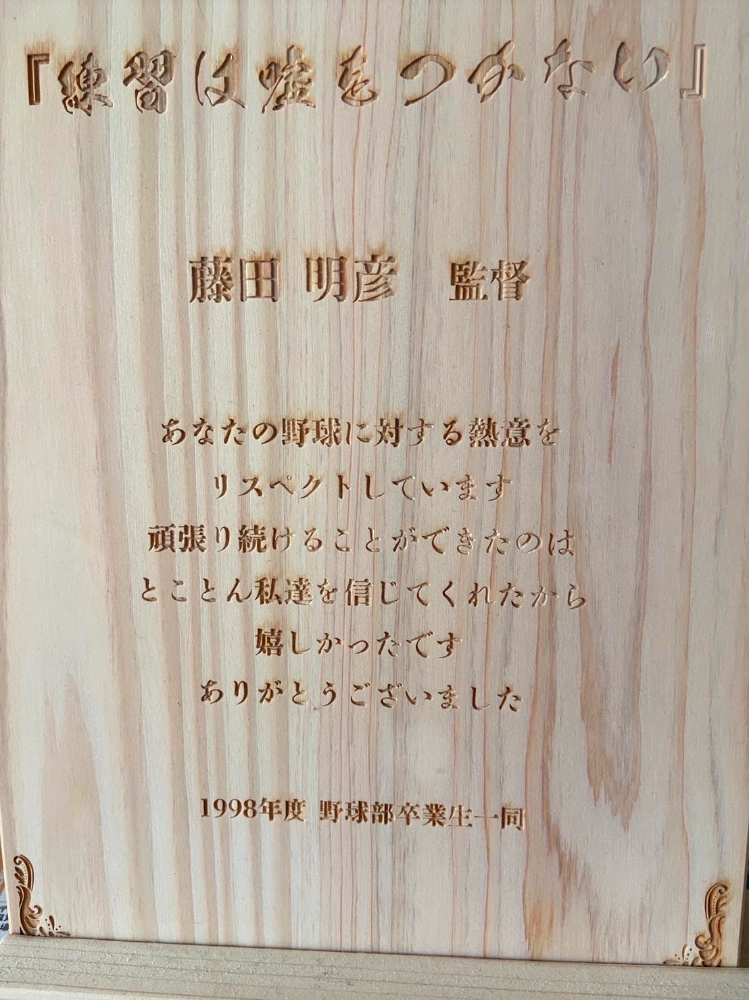 『練習は嘘をつかない』
藤田 明彦 監督
あなたの野球に対する熱意を
リスペクトしています
頑張り続けることができたのは
とことん私達を信じてくれたから
嬉しかったです
ありがとうございました
1998年度 野球部卒業生一同